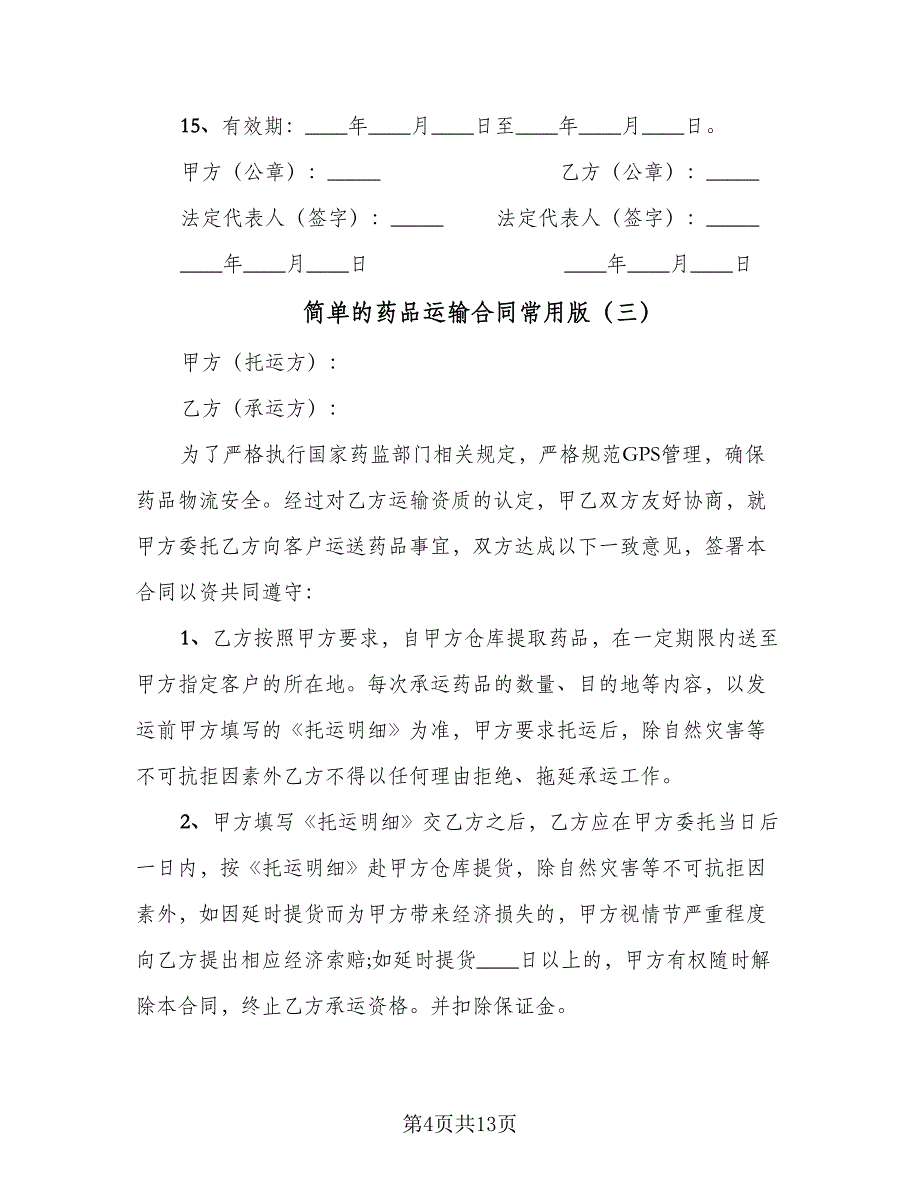 15、有效期：____年____月____日至____年____月____日。
甲方（公章）：_____ 乙方（公章）：_____
法定代表人（签字）：_____ 法定代表人（签字）：_____
____年____月____日 ____年____月____日
简单的药品运输合同常用版（三）
甲方（托运方）：
乙方（承运方）：
为了严格执行国家药监部门相关规定，严格规范GPS管理，确保
药品物流安全。经过对乙方运输资质的认定，甲乙双方友好协商，就
甲方委托乙方向客户运送药品事宜，双方达成以下一致意见，签署本
合同以资共同遵守：
1、乙方按照甲方要求，自甲方仓库提取药品，在一定期限内送至
甲方指定客户的所在地。每次承运药品的数量、目的地等内容，以发
运前甲方填写的《托运明细》为准，甲方要求托运后，除自然灾害等
不可抗拒因素外乙方不得以任何理由拒绝、拖延承运工作。
2、甲方填写《托运明细》交乙方之后，乙方应在甲方委托当日后
一日内，按《托运明细》赴甲方仓库提货，除自然灾害等不可抗拒因
素外，如因延时提货而为甲方带来经济损失的，甲方视情节严重程度
向乙方提出相应经济索赔;如延时提货____日以上的，甲方有权随时解
除本合同，终止乙方承运资格。并扣除保证金。
第4页共13页